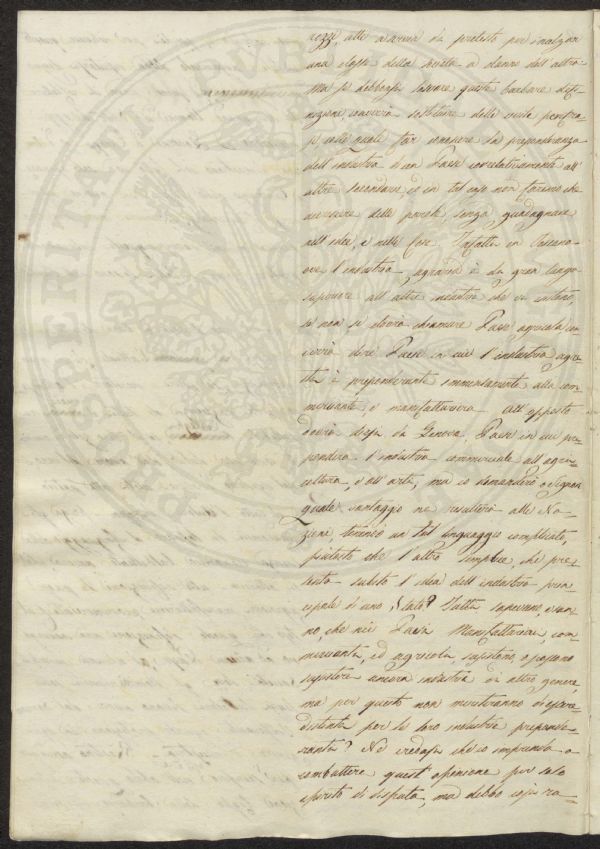 una classe della società a danno dell'altra.
Ma se debbonsi lasciare queste barbare defi-
nizioni, converrà sostituire delle simile perifra-
si colle quali far conoscere la preponderanza
dell'industria d'un Paese correlativamente all'
altre secondarie, ed in tal caso non faremo che
accrescere delle parole senza guadagnare
nell'idee, e nelle fare. Infatti in Toscana
ove l'industria agraria è da gran lunga
superiore all'altre industrie che vi esistono,
se non si dovrà chiamare Paese agricola con
verrà dire Paese in cui l'industria agri-
cola è preponderante immensamente alla com-
merciante, e manifatturiera. All'opposto
dovrà dirsi di Genova, Paese in cui pre-
pondera l'industria commerciale all'agri-
cultura, e all'arti, ma io domanderò o Signori
quale vantaggio ne resulterà alle Na-
zioni, tenendo un tal linguaggio complicato,
piutosto che l'altro semplice, che pre-
senta subito l'idea dell'industria prin-
cipale d'uno Stato? Tutti sapevano, e san-
no, che nei Paesi Manifatturieri, com-
mercianti, ed agricoli, esistono, o possono
esistere ancora industrie di altro genere,
ma per questo non meriteranno di essere
distinti per le loro industrie preponde-
ranti? Né credasi che io imprenda a
combattere quest'opinione per solo
spirito di disputa, ma debbo copi ra-